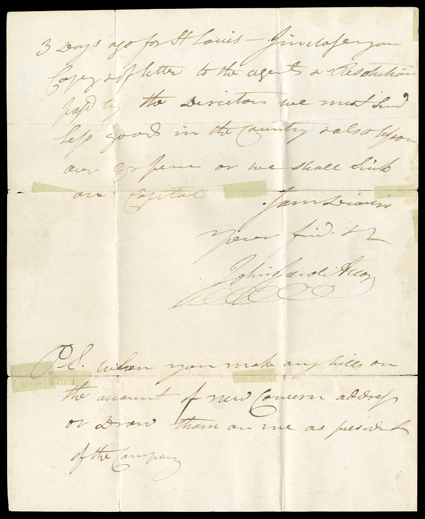 3 Days ago for St Louis – I inclose you
Copy of letter to the agents & Resolution
pasd by the Directors we must Send
less goods in the Country & also
our or we shall Sink
our Capital
I am Dear Sir
your find. &c
John Jacob Astor
P.S. When you make any bills on
the account of new Concern address
or Draw them on me as president
of the Company